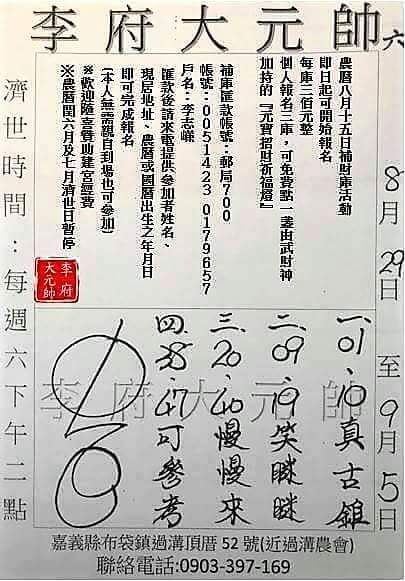 李府大元帥 六
農曆八月十五日補財庫活動
即日起可開始報名
每庫三佰元整
個人報名三庫，可免費點一盞由武財神
加持的『元寶招財祈福燈』
補庫匯款帳號：郵局700
帳號：0051423 0179657
戶名：李志嶸
匯款後請來電提供參加者姓名、
現居地址、農曆或國曆出生之年月日
即可完成報名
(本人無需親自到場也可參加)
※歡迎隨喜贊助建宮經費
※農曆閏六月及七月濟世日暫停
8月29日至9月5日
濟世時間：每週六下午二點
李府
大元帥
李府大元帥
一、01、10真古錐
二、09、19笑瞇瞇
三、20、40慢慢來
四、38、47可參考
嘉義縣布袋鎮過溝頂厝52號(近過溝農會)
聯絡電話:0903-397-169